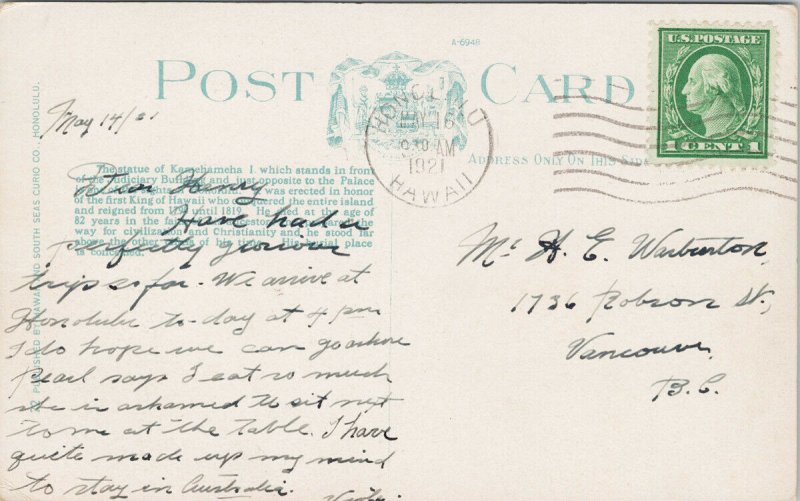 A-6948
POST CARD
U.S. POSTAGE
1 CENT 1
HONOLULU
MAY 16
AM
1921
HAWAII
ADDRESS ONLY ON THIS SIDE
May 14/21
The statue of Kamehameha I. which stands in front
of the Judiciary Building and just opposite to the Palace
was erected in honor
of the first King of Hawaii who conquered the entire island
and reigned from until 1819. He died at the age of
82 years in the
way for civilization and Christianity and he stood far
above the other of his time. His burial place
is concealed.
Dear Henry
Have had a
perfectly glorious
trip so far. We arrive at
Honolulu to-day at 4 pm
I do hope we can go ashore
Pearl says I eat so much
she is ashamed to sit next
to me at the table. I have
quite made up my mind
to stay in Australia.
Mr H. E. Warburton,
1736 Robson St,
Vancouver,
B.C.
PUBLISHED BY HAWAII AND SOUTH SEAS CURIO CO., HONOLULU.